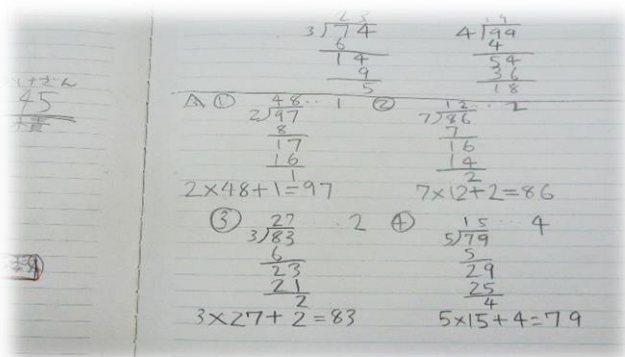 45
23
3)74
6
14
9
5
19
4)94
4
54
36
18
① 48・・1
2)97
8
17
16
1
2×48+1=97
② 12・・2
7)86
7
16
14
2
7×12+2=86
③ 27・・2
3)83
6
23
21
2
3×27+2=83
④ 15・・・4
5)79
5
29
25
4
5×15+4=79